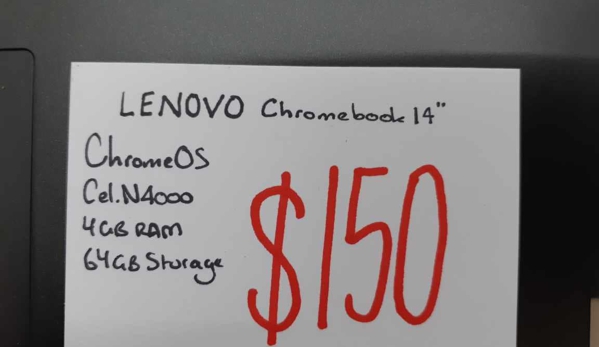 LENOVO Chromebook 14"
ChromeOS
Cel.N4000
4GB RAM
64GB Storage
$150